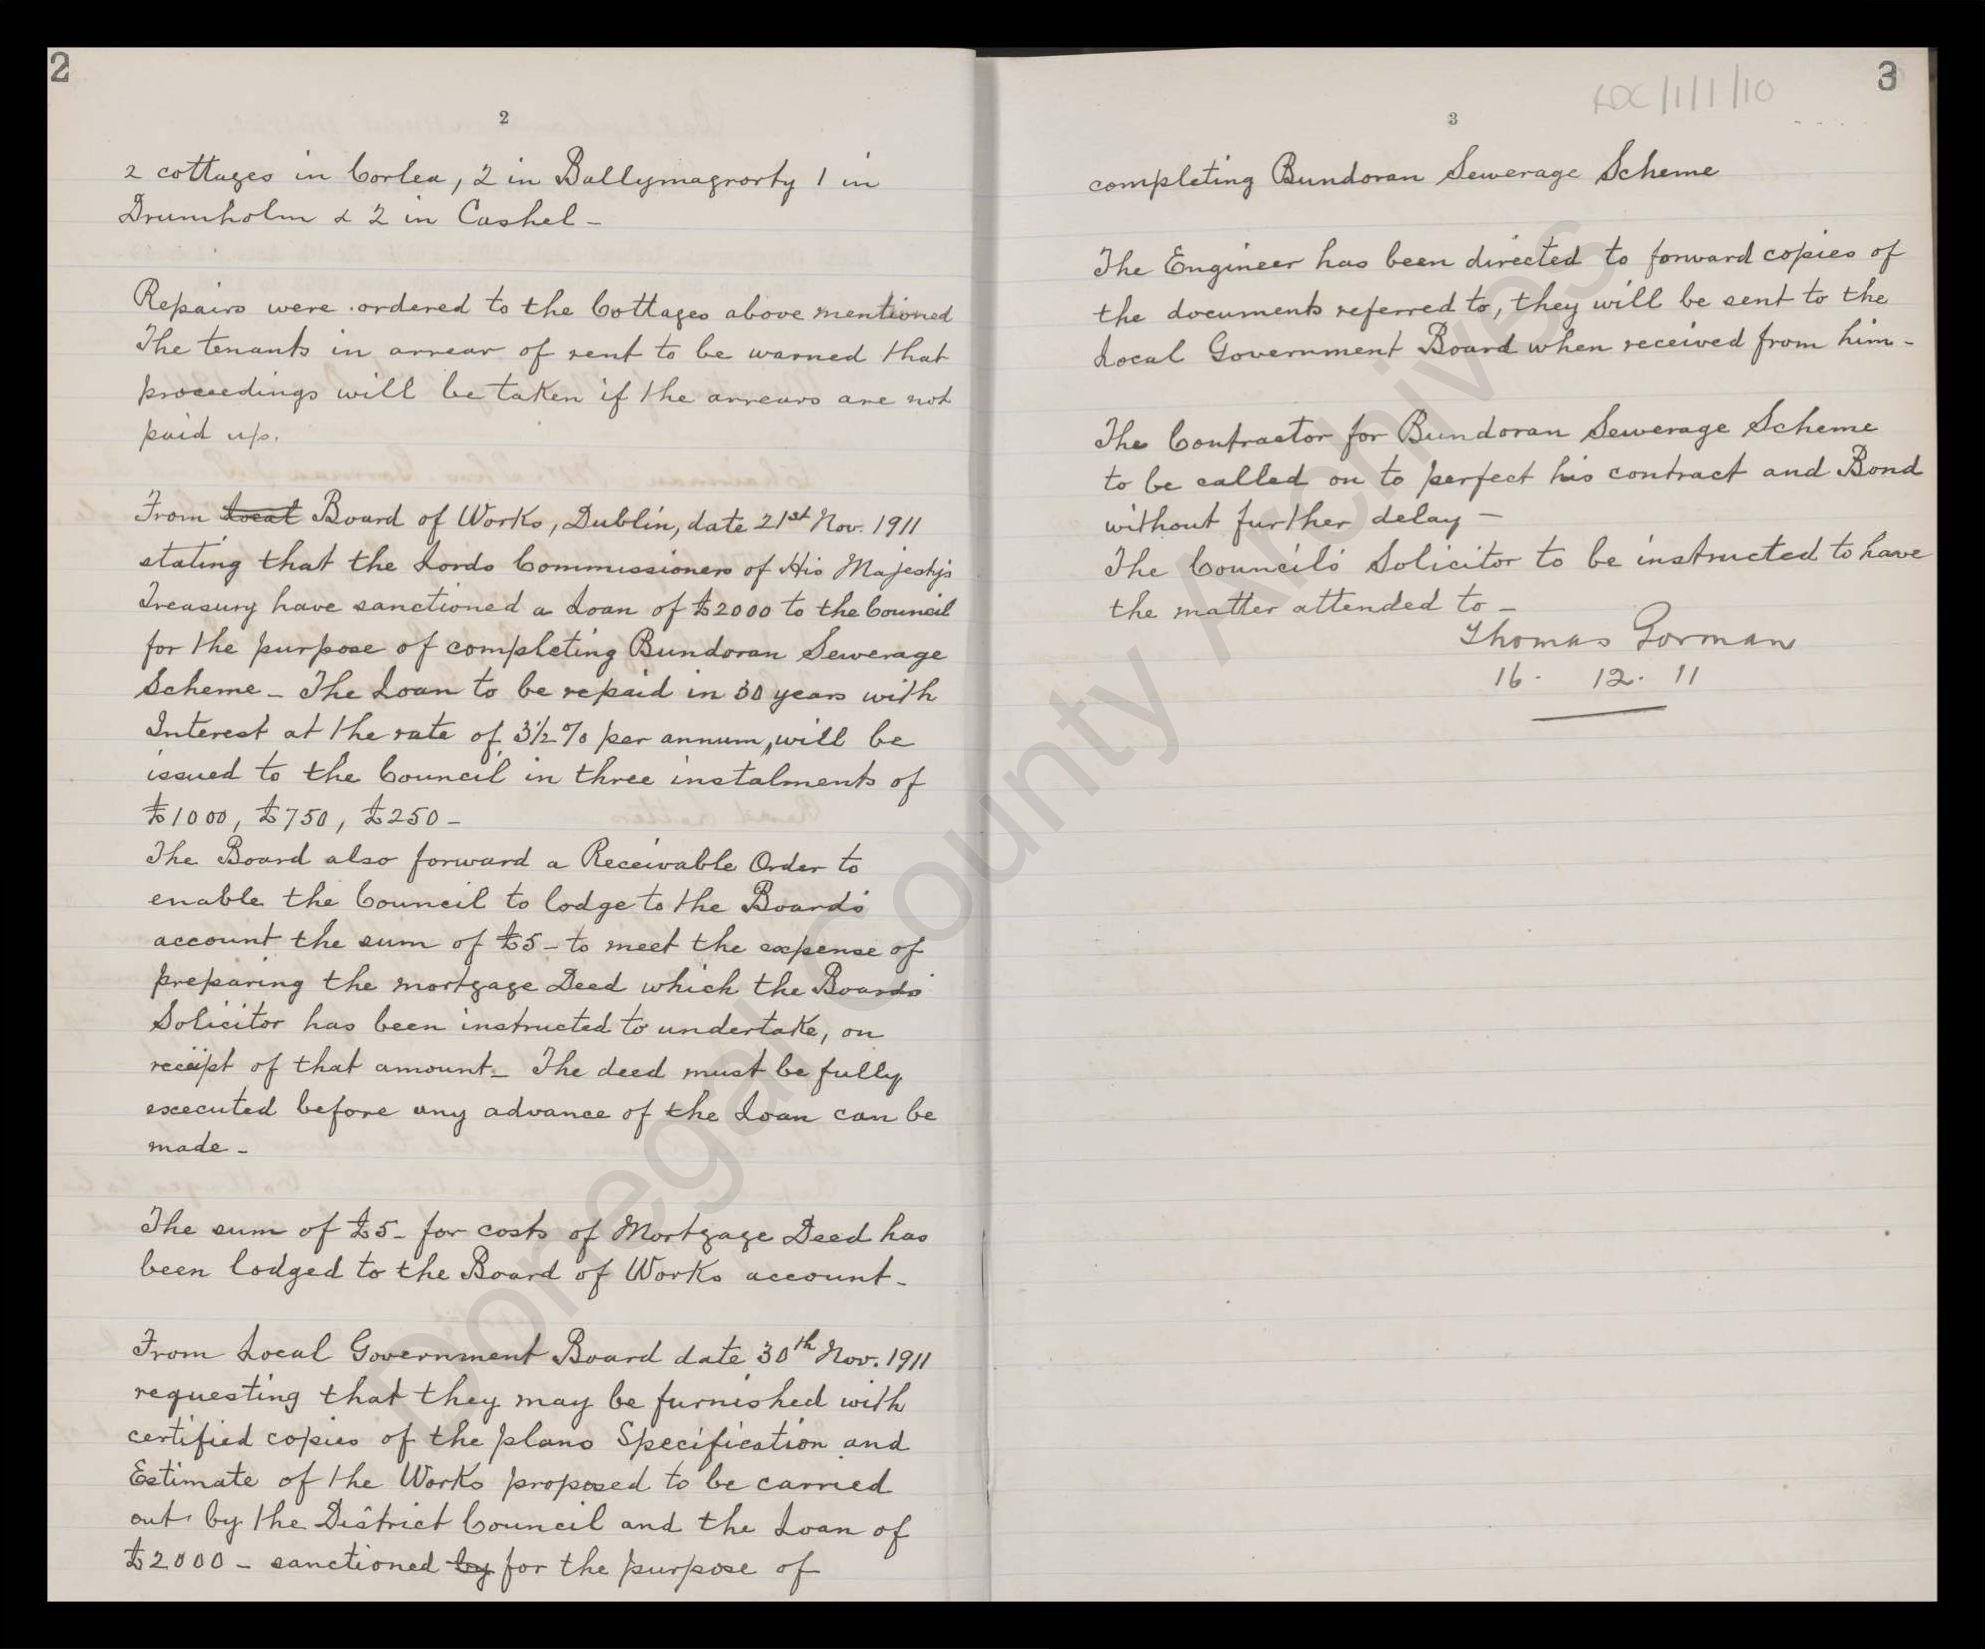 2
2
2 cottages in Corlea, 2 in Ballymagrorty 1 in
Drumholm & 2 in Cashel -
Repairs were ordered to the Cottages above mentioned
The tenants in arrear of rent to be warned that
proceedings will be taken if the arrears are not
paid up.
From Local Board of Works, Dublin, date 21st Nov. 1911
stating that the Lords Commissioners of His Majesty's
Treasury have sanctioned a Loan of £2000 to the Council
for the purpose of completing Bundoran Sewerage
Scheme - The Loan to be repaid in 30 years with
Interest at the rate of 3½% per annum, will be
issued to the Council in three instalments of
£1000, £750, £250 -
The Board also forward a Receivable Order to
enable the Council to lodge to the Board's
account the sum of £5 - to meet the expense of
preparing the mortgage Deed which the Board's
Solicitor has been instructed to undertake, on
receipt of that amount - The deed must be fully
executed before any advance of the Loan can be
made -
The sum of £5 - for costs of Mortgage Deed has
been lodged to the Board of Works account -
From Local Government Board date 30th Nov. 1911
requesting that they may be furnished with
certified copies of the plans Specification and
Estimate of the Works proposed to be carried
out by the District Council and the Loan of
£2000 - sanctioned by for the purpose of
3
RDC/1/1/10
3
completing Bundoran Sewerage Scheme
The Engineer has been directed to forward copies of
the documents referred to, they will be sent to the
Local Government Board when received from him -
The Contractor for Bundoran Sewerage Scheme
to be called on to perfect his contract and Bond
without further delay -
The Council's Solicitor to be instructed to have
the matter attended to -
Thomas Gorman
16. 12. 11
Donegal County Archives